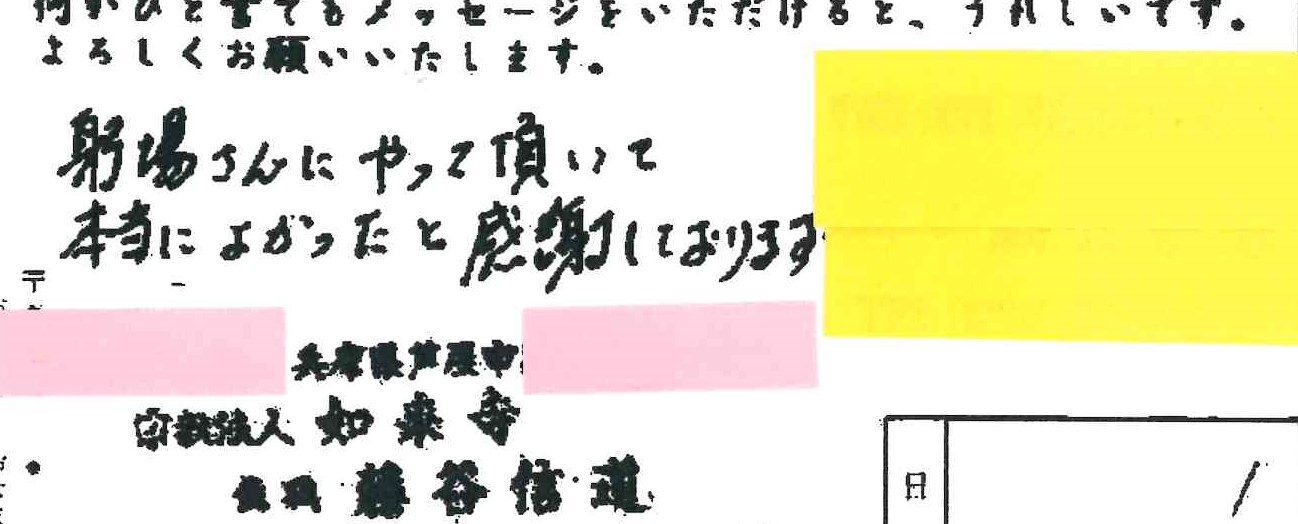 何かひと言でもメッセージをいただけると、うれしいです。
よろしくお願いいたします。
躬場さんにやって頂いて
本当によかったと感謝しております
〒
兵庫県芦屋市
宗教法人 如来寺
住職 藤谷信道
日